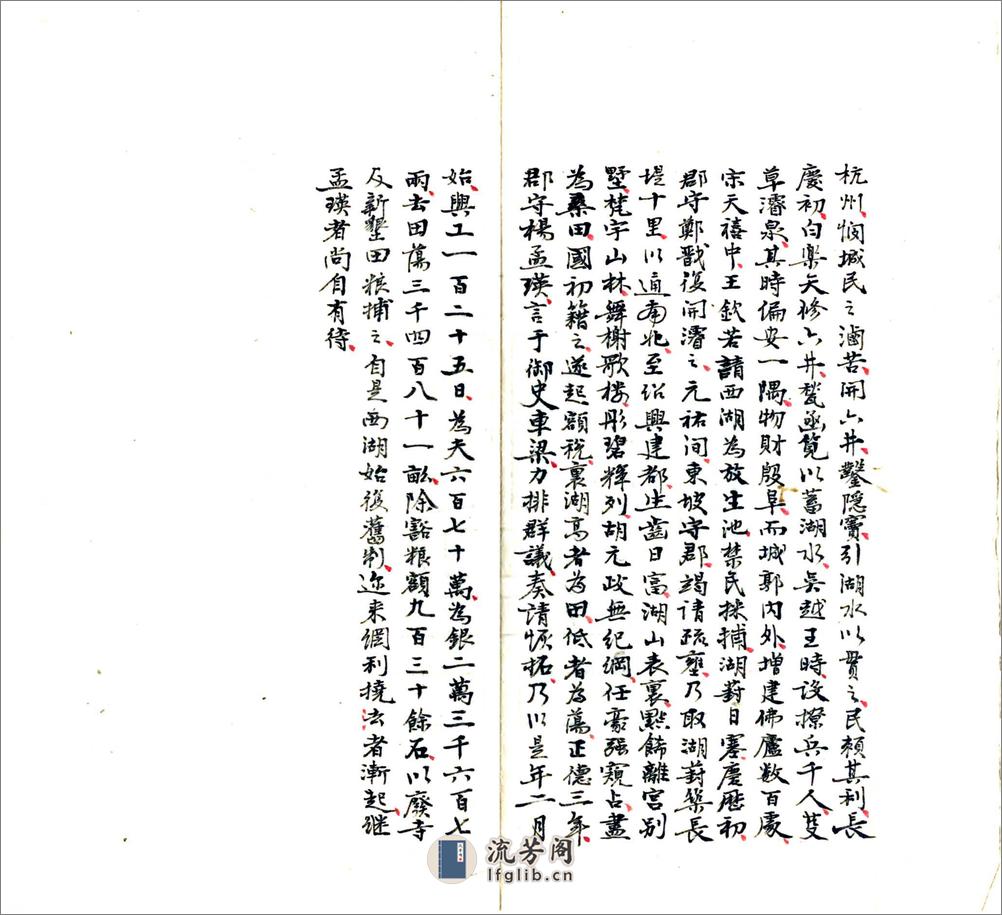 杭州、憫城民之滷苦、開六井、鑿隠竇、引湖水以貫之、民頼其利、長
慶初、白楽天修六井、甃函筧以蓄湖水、吳越王時、設撩兵千人、芟
草濬泉、其時偏安一隅、物財殷阜、而城郭内外、增建佛廬数百處、
宋天禧中、王欽若請西湖為放生池、禁民採捕、湖葑日塞、慶厯初、
郡守鄭戩復開濬之、元祐间、東坡守郡、竭請疏壅、乃取湖葑築長
堤十里、以通南北、至紹興建都、生齒日富、湖山表裏、點餙離宮别
墅、梵宇山林、舞榭歌楼、彤碧輝列、胡元政無紀綱、任豪强窺占、盡
為桑田、國初籍之、遂起額税、裏湖高者為田、低者為蕩、正德三年、
郡守楊孟瑛、言于御史車梁、力排群議、奏請恢拓、乃以是年二月
始、興工一百二十五日、為夫六百七十萬、為銀二萬三千六百七
兩、去田蕩三千四百八十一畝、除豁粮額九百三十餘石、以廢寺
及新墾田粮捕之、自是西湖始復舊制、迩来網利撓法者漸起、继
孟瑛者尚自有待、
流芳阁
lfglib.cn